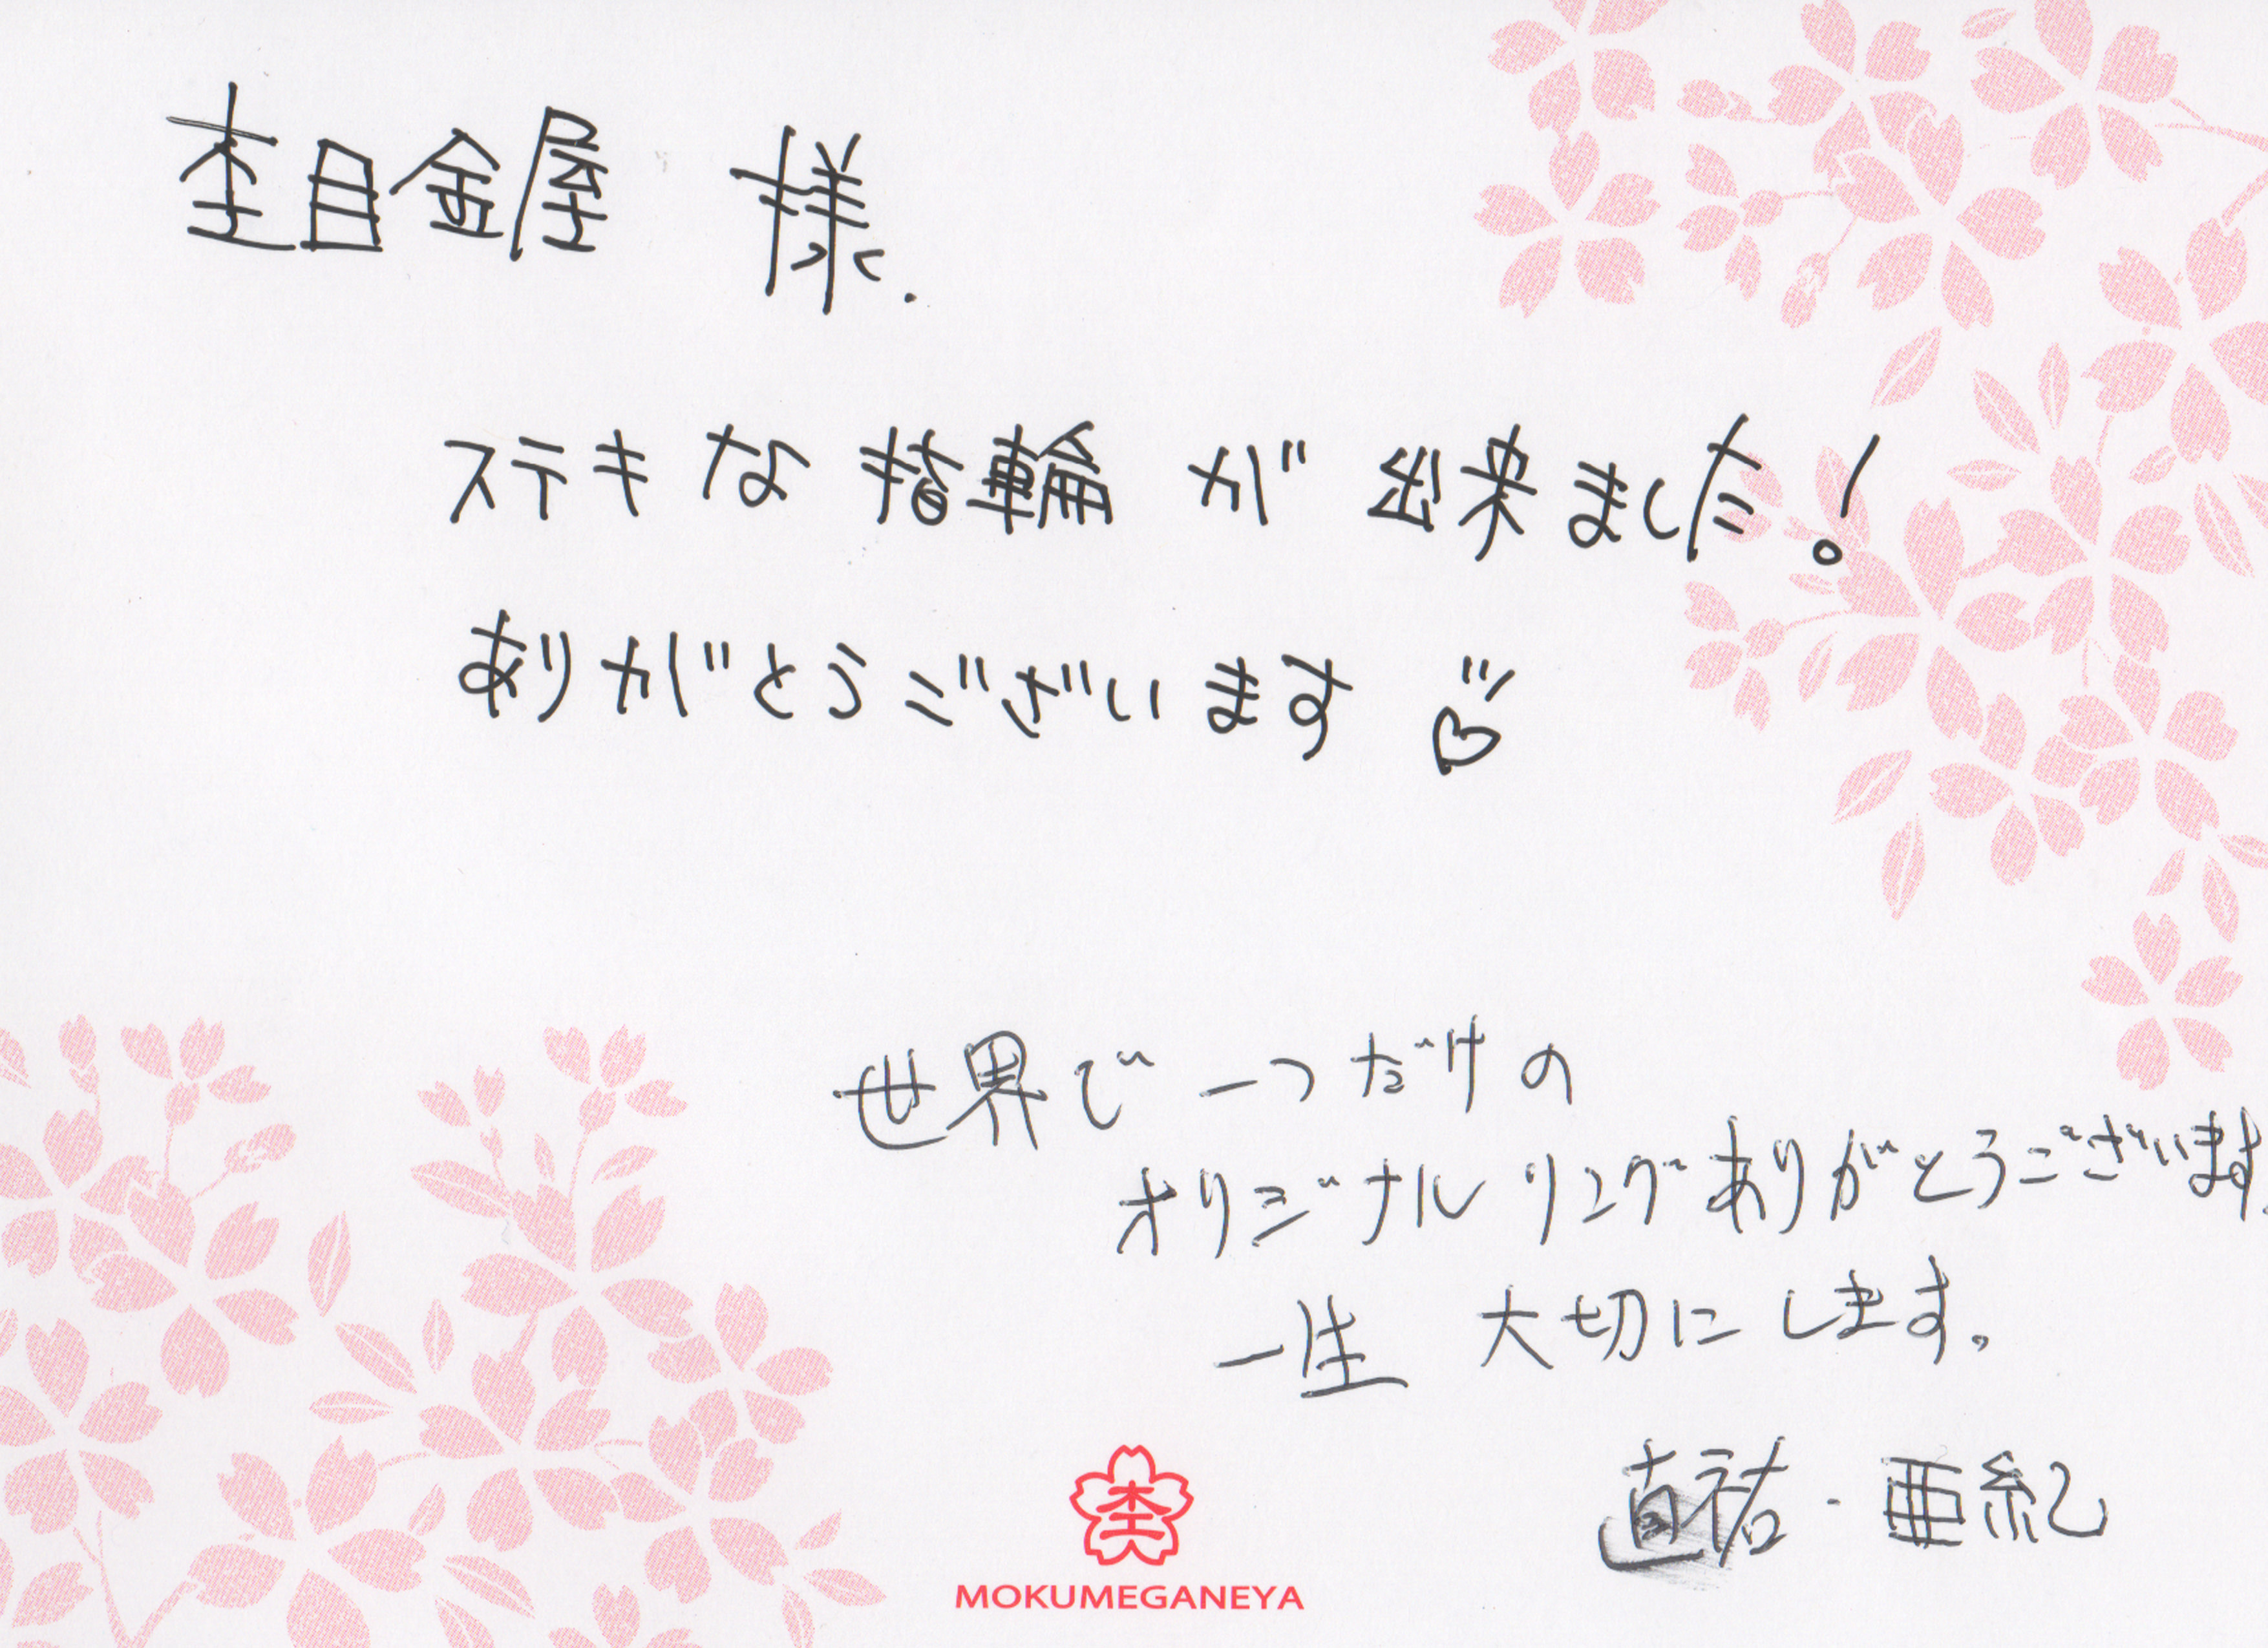 杢目金屋 様.
ステキな指輪が出来ました!
ありがとうございます♡
世界で一つだけの
オリジナルリングありがとうございます。
一生 大切にします。
直祐・亜紀
杢
MOKUMEGANEYA